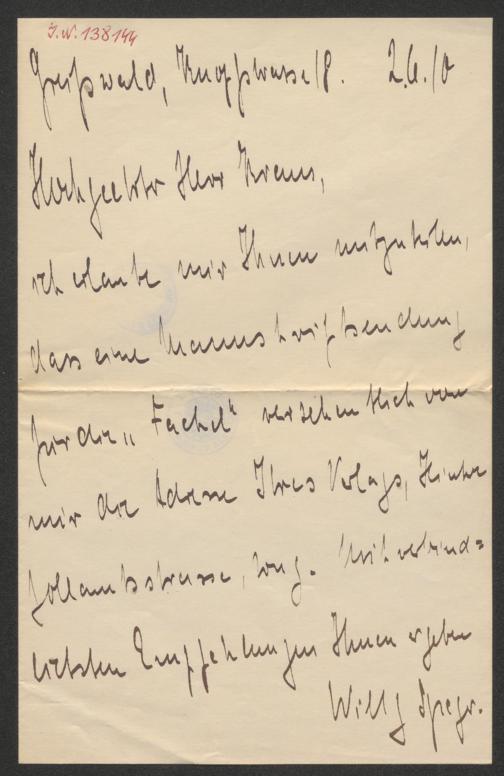 J.N. 138144
Greifswald, Knopfstrasse 18. 2.6.10
Hochgeehrter Herr Kraus,
ich erlaube mir Ihnen mitzuteilen,
dass eine Manuskriptsendung
für die „Fackel“ versehentlich von
mir die Adresse Ihres Verlags, Hintere
Zollamtsstrasse, trug. Mit verbind=
lichsten Empfehlungen Ihnen ergeben
Willy